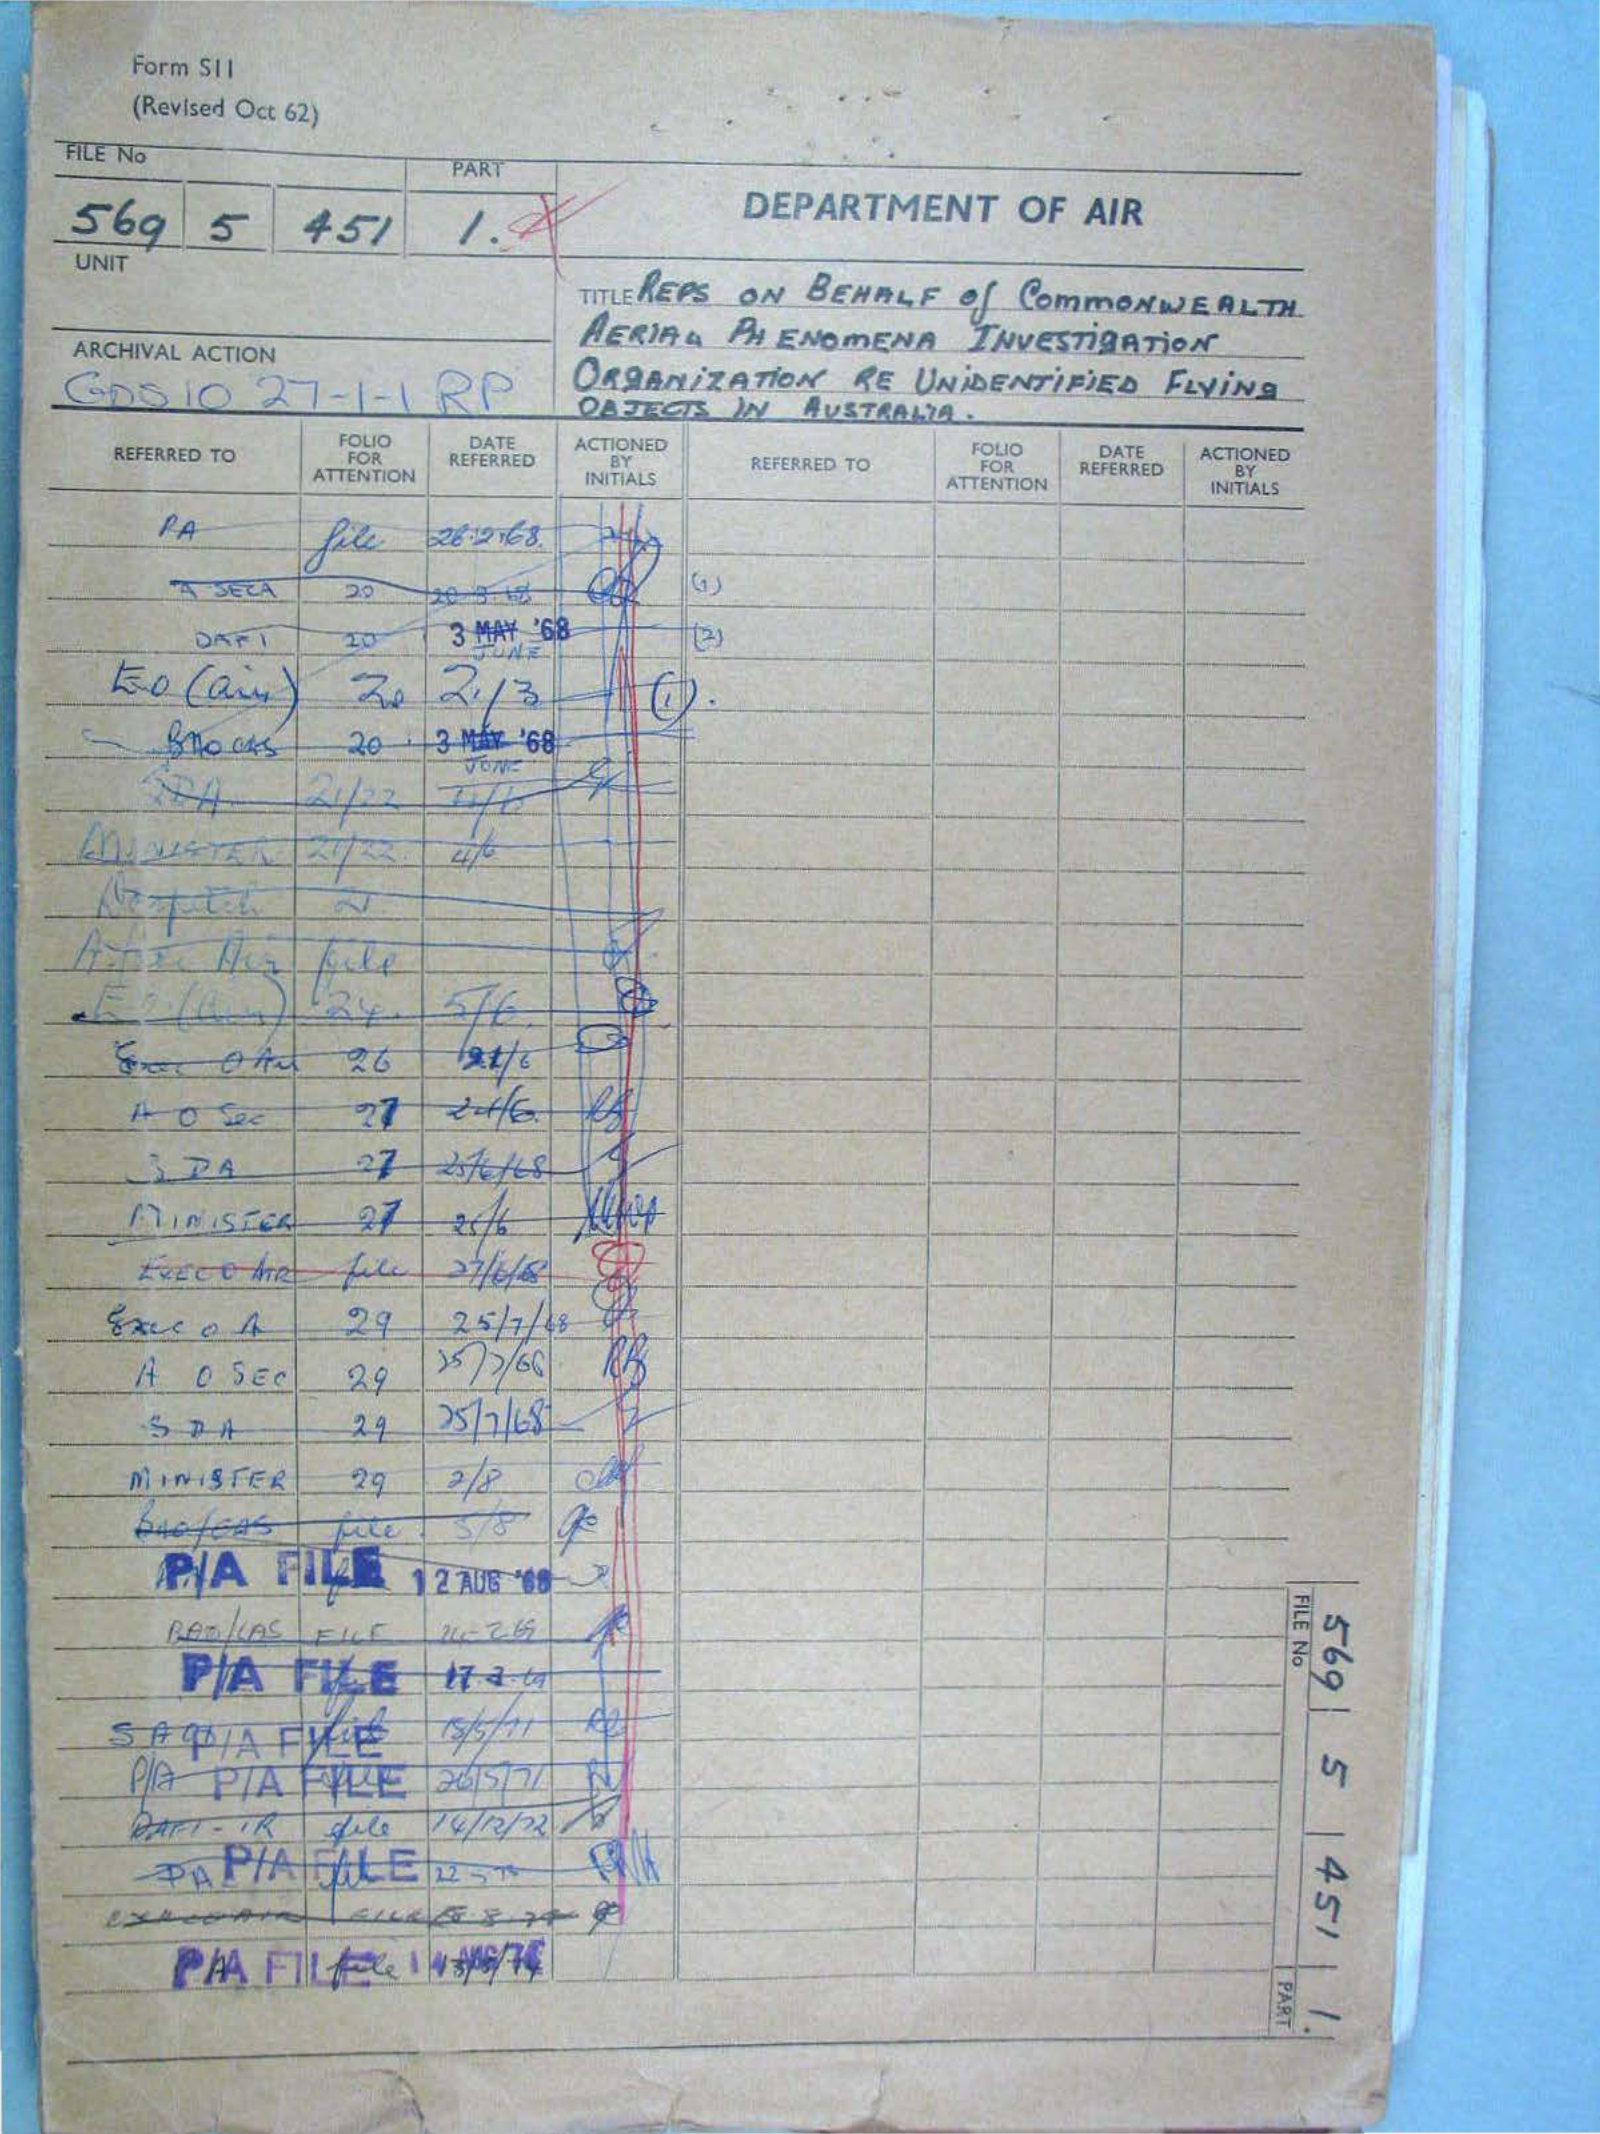 Form S11
(Revised Oct 62)
FILE No
PART
569 5 451 1.
DEPARTMENT OF AIR
UNIT
TITLE REPS ON BEHALF of COMMONWEALTH
AERIAL PHENOMENA INVESTIGATION
ORGANIZATION RE UNIDENTIFIED FLYING
OBJECTS IN AUSTRALIA.
ARCHIVAL ACTION
GDS10 27-1-1 RP
REFERRED TO FOLIO FOR ATTENTION DATE REFERRED ACTIONED BY INITIALS REFERRED TO FOLIO FOR ATTENTION DATE REFERRED ACTIONED BY INITIALS
PA file 26.2.68.
A SECA 20 (1)
DAFI 20 3 MAY '68 (2)
JUNE
EO (air) 20 2/3 (1).
20 3 MAY '68
JUNE
SDA 21/22 4/6
MINISTER 21/22 4/6
Despatch
file
EO (air) 24 5/6
Exec O Air 26 21/6
A O Sec 27 24/6
SDA 27 25/6/68
MINISTER 27 25/6
EXEC O AIR file 27/6/68
Exec O A 29 25/7/68
A O SEC 29 25/7/68 RB
SDA 29 25/7/68
MINISTER 29 2/8
BAO/CAS file 5/8
P/A FILE 12 AUG '68
BAO/CAS FILE
P/A FILE
P/A FILE 18/5/71
P/A P/A FILE 26/5/71
DAFI-IR file 14/12/72
PA P/A FILE
EXEC O AIR FILE
P/A FILE
FILE No 569 5 451 1. PART